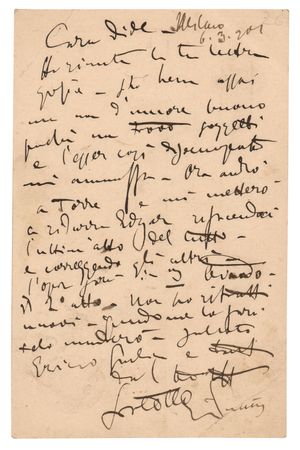 Cara Dide - Milano
6.3.901
Ho avuto la tua lettera
- Sto bene assai
ma non d'umore buono
perché non trovo soggetti
e l'esser così disoccupato
mi ammuffa - Ora andrò
a Torre e mi metterò
a ridurre Edgar rifacendoci
l'ultimo atto del tutto -
e correggendo gli altri -
l'opera sarà in 3
il 2° atto - non ho ritratti
nuovi - quando me lo farò
te lo manderò - Saluta
Enrico Giulia e tutti
dal
fratello